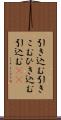 引き込む引き
こむひき込む
引込む